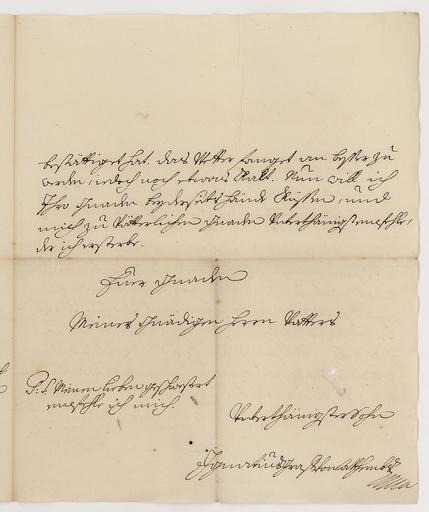 bestättiget hat. das Wetter fanget an besser zu
werden, iedoch noch etwas Kalt. Nun will ich
Ihro Gnaden beyderseits hände Küssen, und
mich zu Vätterlichen Gnaden Unterthänigst empfehle,
der ich ersterbe.
Euer Gnaden
Meines Gnädigen Herrn Vatters
P: S. Meinen lieben geschwistert
empfehle ich mich.
Unterthänigster Sohn
Ignatius Graf von